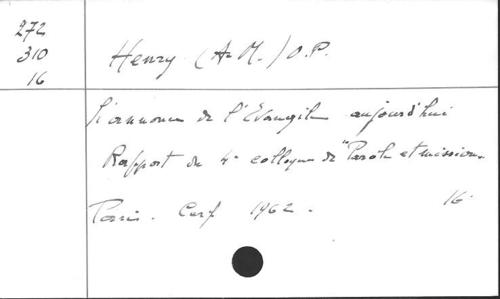 272
310
16
Henry (A-M.) O.P.
L'annonce de l'Evangile aujourd'hui
Rapport du 4e colloque de "Parole et mission.
Paris. Cerf 1962.
16